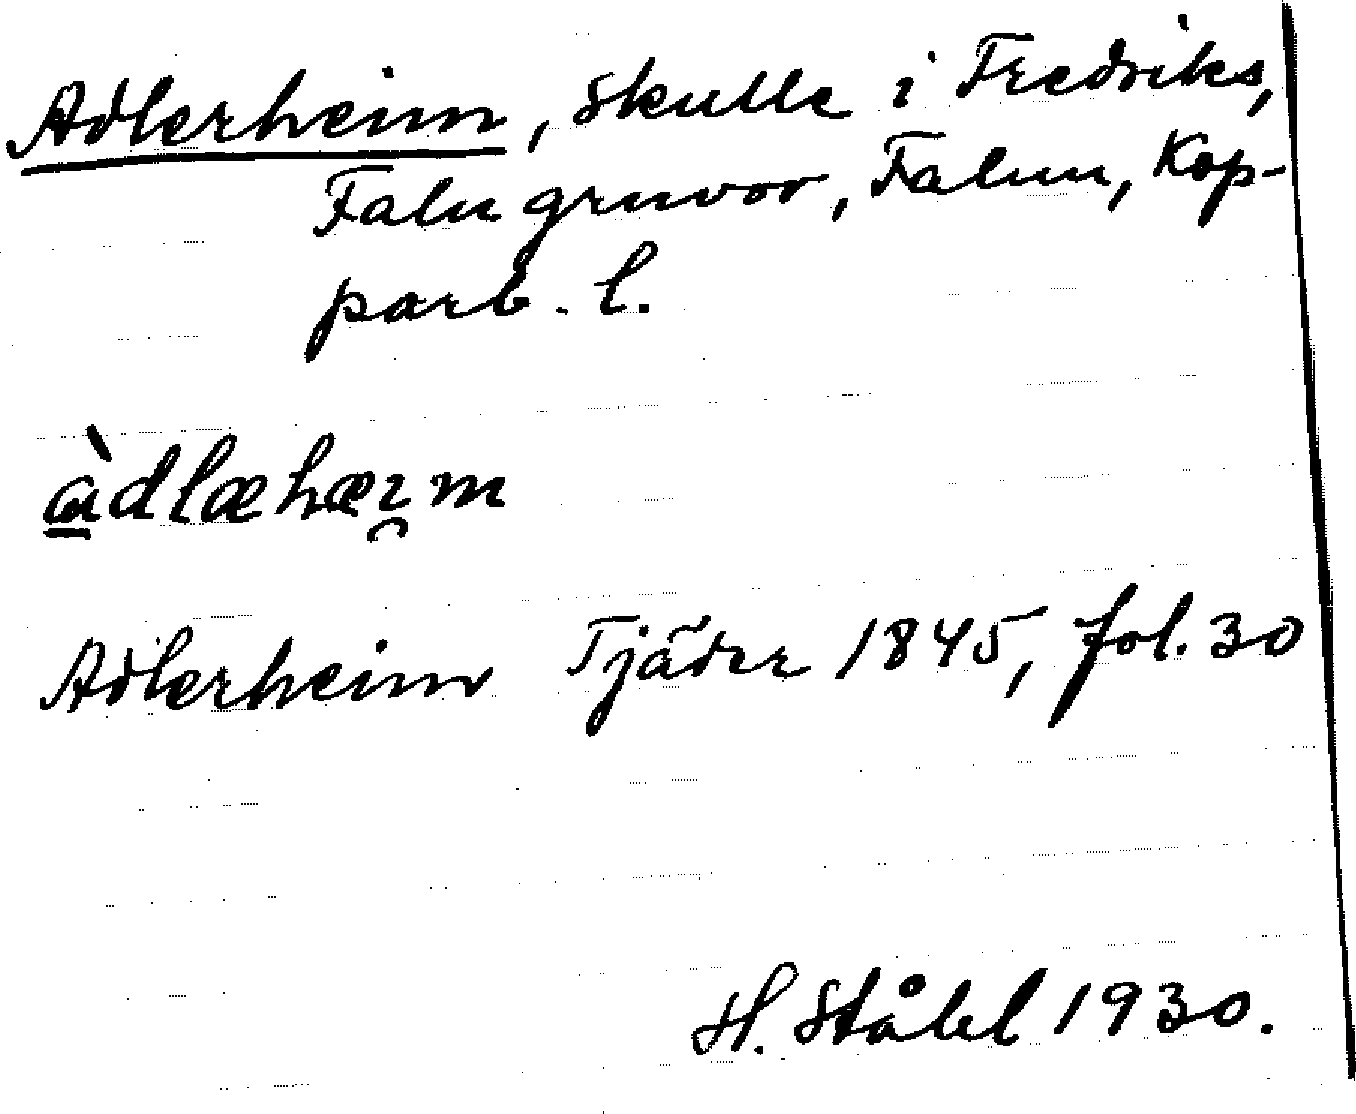 Adlerheim, skulle i Fredriks,
Falu gruvor, Falun, Kop-
parb. l.
àdlæhæı̯m
Adlerheim Tjäder 1845, fol. 30
H. Ståhl 1930.